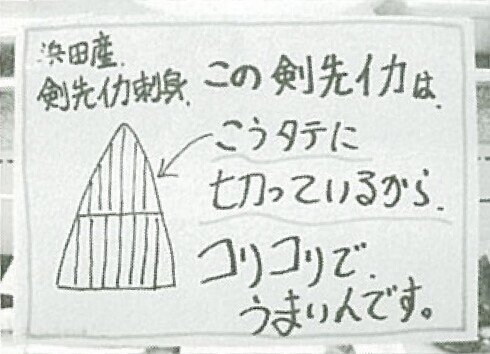 浜田産
剣先イカ刺身
この剣先イカは、
こうタテに
切っているから、
コリコリで、
うまいんです。